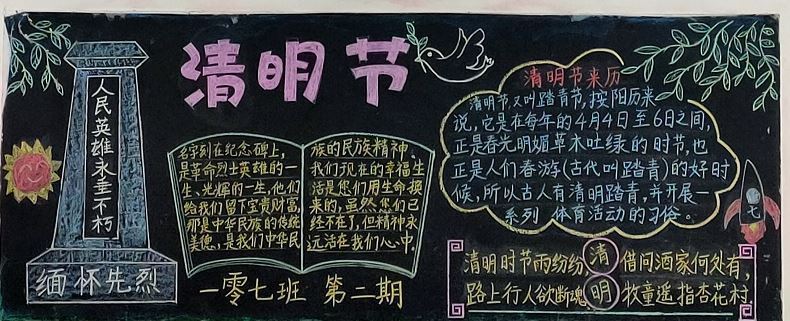 清明节
人民英雄永垂不朽
缅怀先烈
名字刻在纪念碑上,
是革命烈士英雄的一
生、光辉的一生,他们
给我们留下宝贵财富,
那是中华民族的传统
美德、是我们中华民
族的民族精神。
我们现在的幸福生
活是您们用生命换
来的,虽然您们已
经不在了,但精神永
远活在我们心中。
一零七班 第二期
清明节来历
清明节又叫踏青节,按阳历来
说,它是在每年的4月4日至6日之间,
正是春光明媚草木吐绿的时节,也
正是人们春游(古代叫踏青)的好时
候,所以古人有清明踏青,并开展一
系列体育活动的习俗。
七
清明
清明时节雨纷纷,
路上行人欲断魂
借问酒家何处有,
牧童遥指杏花村.